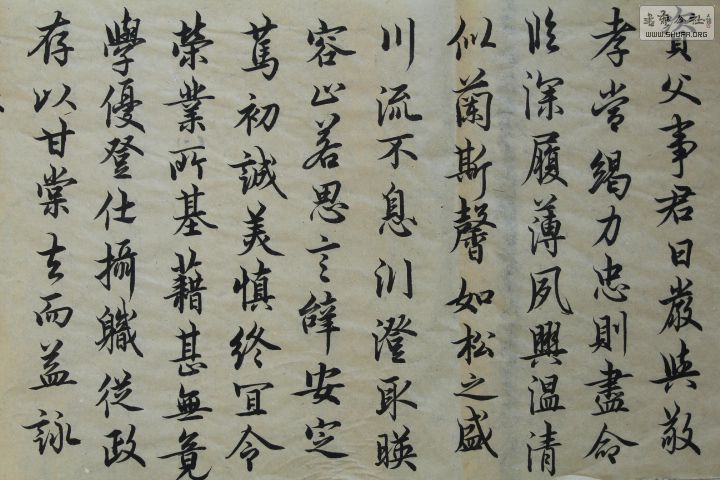 資父事君曰嚴與敬
孝當竭力忠則盡命
臨深履薄夙興温清
似蘭斯馨如松之盛
川流不息淵澄取暎
容止若思言辭安定
篤初誠美慎終宜令
榮業所基藉甚無竟
學優登仕攝職從政
存以甘棠去而益詠
WWW.SHUFA.ORG